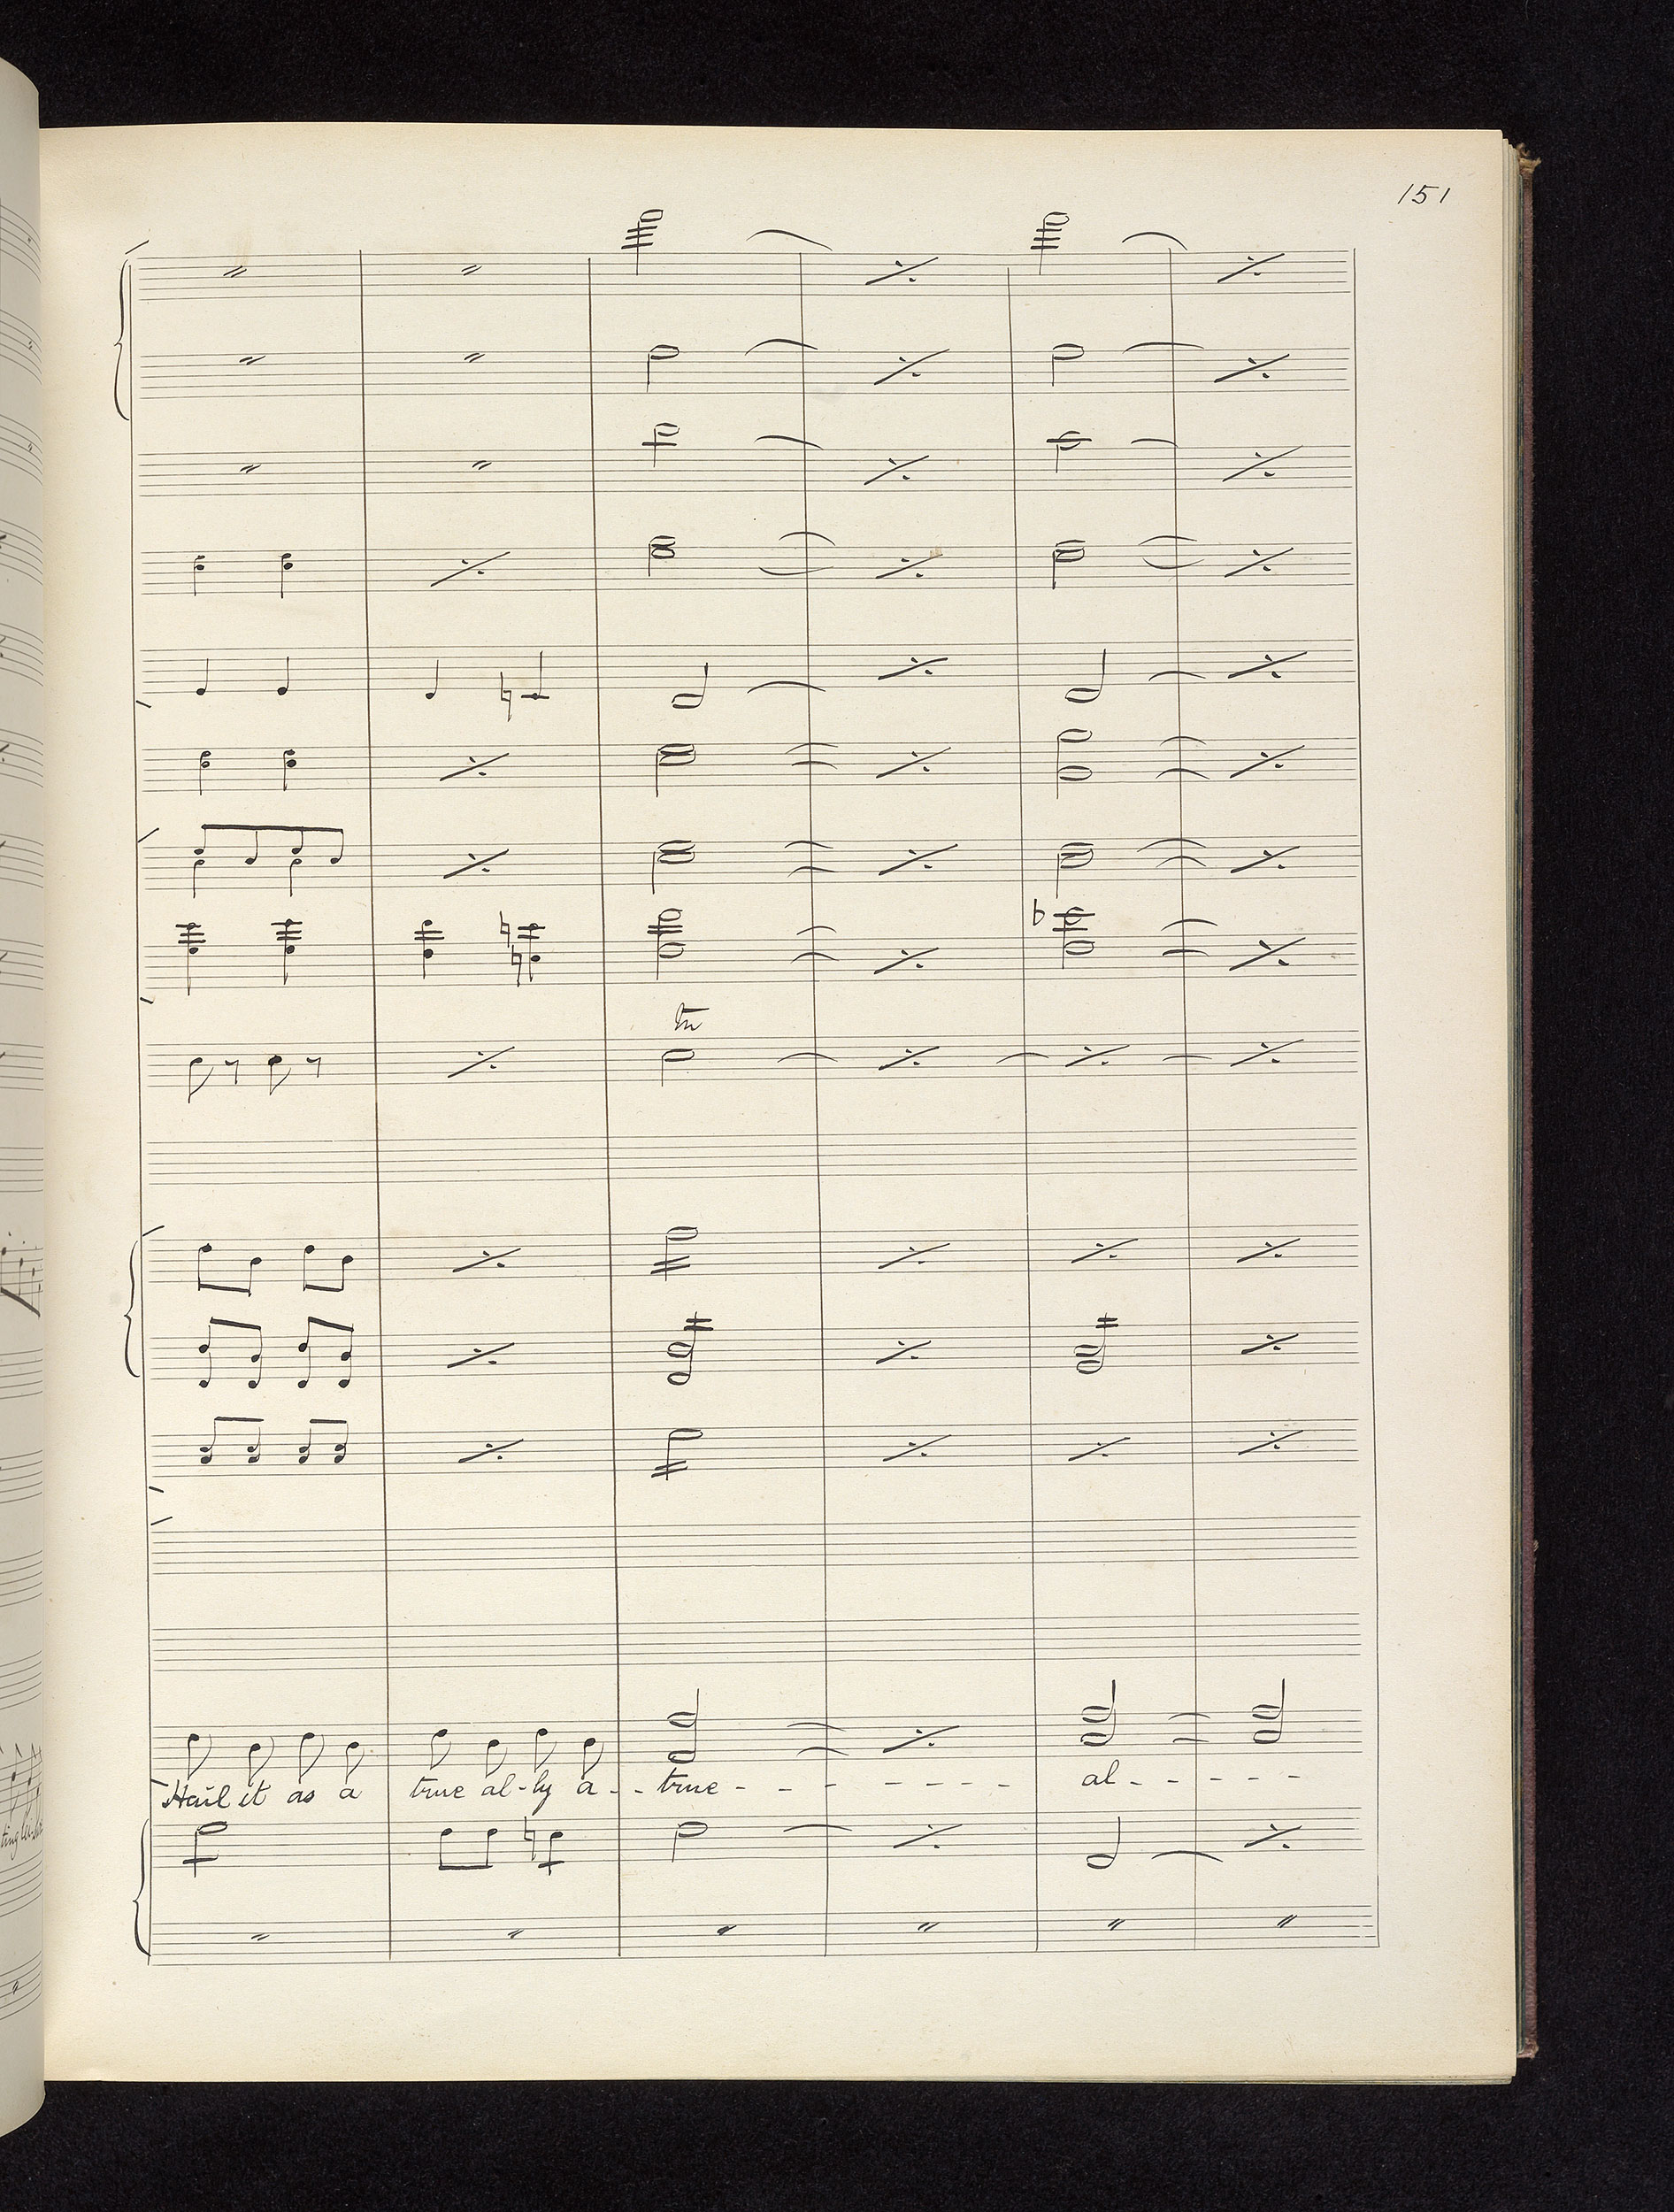 151
tr
Hail it as a true al-ly a - - true - - - - - - - - al - - - - -